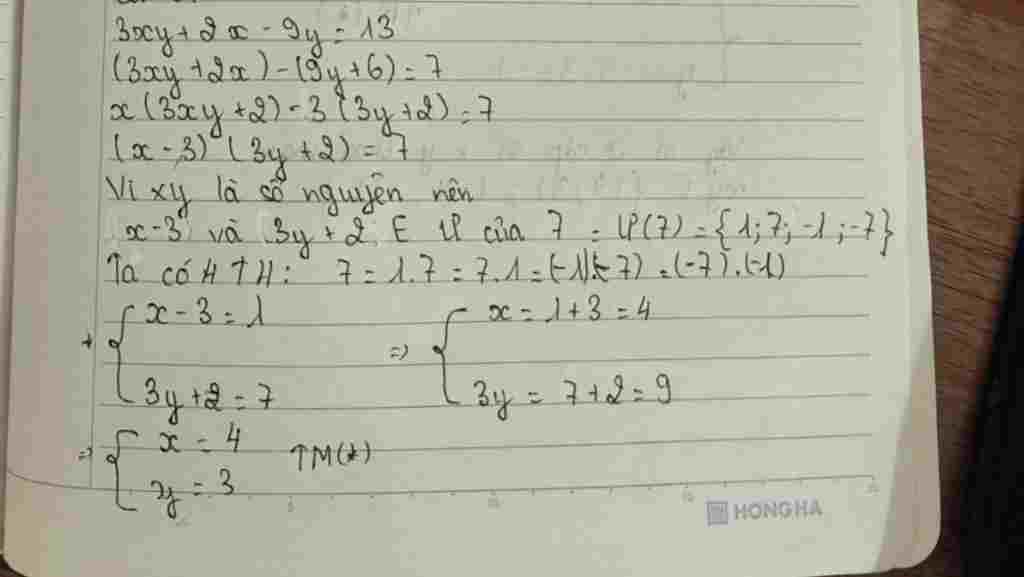 3xy + 2x - 9y = 13
(3xy + 2x) - (9y + 6) = 7
x (3xy + 2) - 3 (3y + 2) = 7
(x - 3) (3y + 2) = 7
Vì xy là số nguyên nên
x - 3 và 3y + 2 E Ư của 7 = Ư(7) = {1; 7; -1; -7}
Ta có 4 TH: 7 = 1.7 = 7.1 = (-1)(-7) = (-7).(-1)
+ { x - 3 = 1 => { x = 1 + 3 = 4
3y + 2 = 7 3y = 7 + 2 = 9
=> { x = 4 TM(*)
y = 3
HONG HA